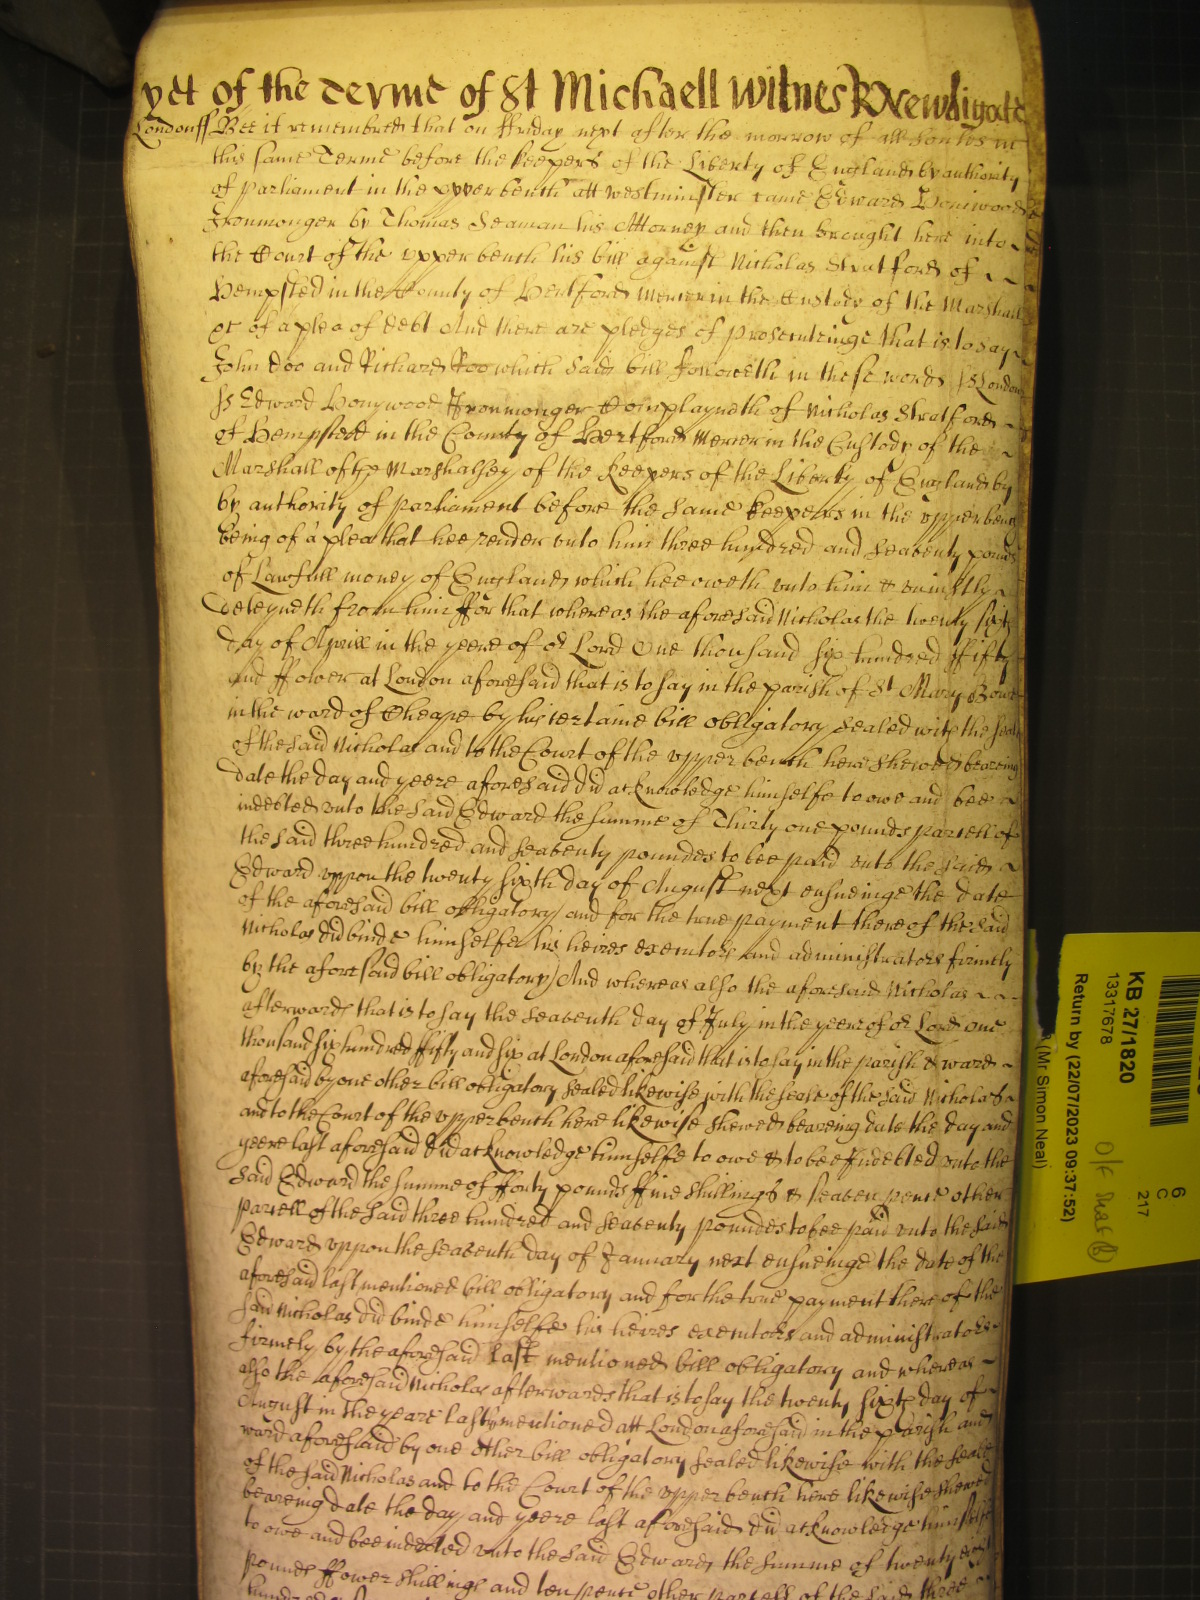 yet of the terme of St Michaell Witnes R Newdigate
Londonss Bee it remembred that on ffriday next after the morrow of all Soules in
this same Terme before the keepers of the Liberty of England by authority
of parliament in the vpper bench att westminster came Edward Honiwood
Ironmonger by Thomas Seaman his Attorney and then brought here into
the Court of the vpper bench his bill against Nicholas Stratford of
Hempsted in the County of Hertford Mercer in the Custody of the Marshall
&c of a plea of debt And there are pledges of prosecuteinge that is to say
John Doo and Richard Roo which said bill followeth in these words ss London
ss Edward Honywood Ironmonger Complayneth of Nicholas Stratford
of Hempsted in the County of Hertford Mercer in the Custody of the
Marshall of the Marshalsey of the keepers of the Liberty of England by
by authority of parliament before the same keepers in the vpper bench
being of a plea that hee render vnto him three hundred and seaventy pounds
of Lawfull money of England which hee oweth vnto him & vniustly
deteyneth from him ffor that whereas the aforesaid Nicholas the twenty sixth
day of Aprill in the yeere of or Lord One thousand six hundred ffifty
and ffower at London aforesaid that is to say in the parish of St Mary Bowe
in the ward of Cheape by his certaine bill obligatory sealed with the seale
of the said Nicholas and to the Court of the vpper bench here shewed beareing
date the day and yeere aforesaid did acknowledge himselfe to owe and bee
indebted vnto the said Edward the summe of Thirty one pounds parcell of
the said three hundred and seaventy poundes to bee paid vnto the said
Edward vppon the twenty sixth day of August next ensueinge the date
of the aforesaid bill obligatory and for the true payment thereof the said
Nicholas did binde himselfe his heires executors and administrators firmely
by the aforesaid bill obligatory And whereas also the aforesaid Nicholas
afterwards that is to say the seaventh day of July in the yeere of or Lord one
thousand six hundred ffifty and six at London aforesaid that is to say in the parish & ward
aforesaid by one other bill obligatory sealed likewise with the seale of the said Nicholas
and to the Court of the vpper bench here likewise shewed beareing date the day and
yeere last aforesaid did acknowledge himselfe to owe & to bee Indebted vnto the
said Edward the summe of fforty pounds ffive shillings & seaven pence other
parcell of the said three hundred and seaventy poundes to bee paid vnto the said
Edward vppon the seaventh day of January next ensueinge the date of the
aforesaid last mentioned bill obligatory and for the true payment there of the
said Nicholas did binde himselfe his heires executors and administrators
firmely by the aforesaid last mentioned bill obligatory and whereas
also the aforesaid Nicholas afterwards that is to say the twenty sixth day of
August in the yeare last mentioned att London aforesaid in the parish and
ward aforesaid by one other bill obligatory sealed likewise with the seale
of the said Nicholas and to the Court of the vpper bench here likewise shewed
beareing date the day and yeere last aforesaid did acknowledge himselfe
to owe and bee indebted vnto the said Edward the summe of twenty eight
pounds ffower shillings and ten pence other parcell of the said three
KB 27/1820
13317678
Return by (22/07/2023 09:37:52)
(Mr Simon Neal)
6
C
217